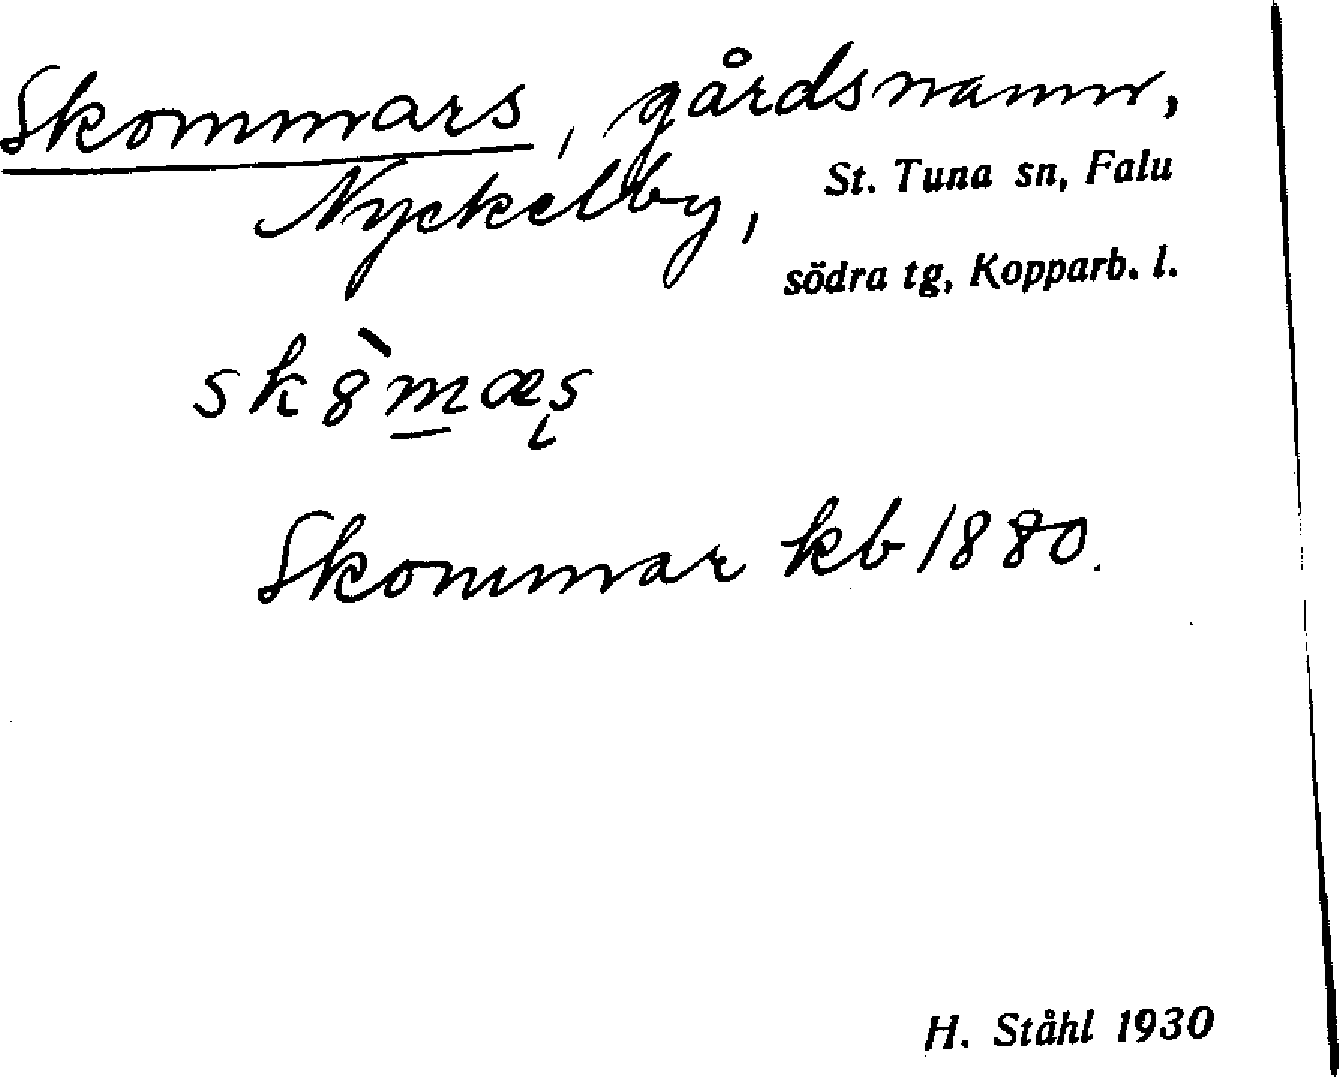 Skommars, gårdsnamn,
Nyckelby, St. Tuna sn, Falu
södra tg, Kopparb. l.
sk8̀m̲æʂ
Skommar kb 1880.
H. Ståhl 1930